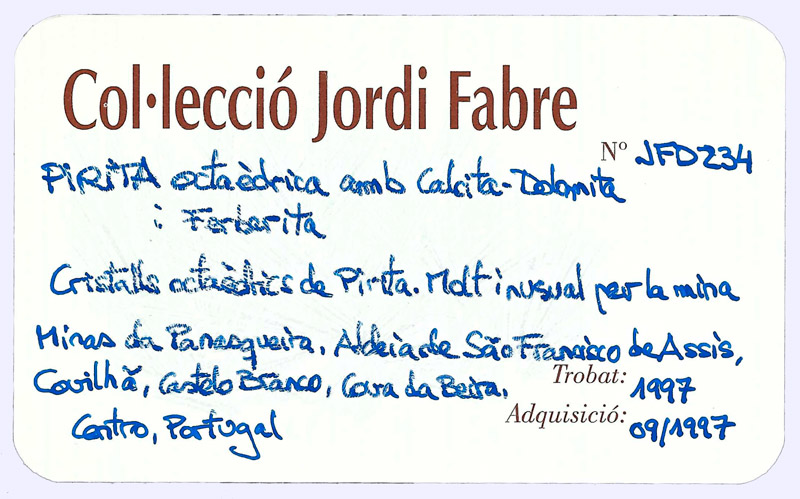 Col·lecció Jordi Fabre
Nº JFD234
PIRITA octaèdrica amb Calcita-Dolomita
i Ferberita
Cristalls octaèdrics de Pirita. Molt inusual per la mina
Minas da Panasqueira, Aldeia de São Francisco de Assis,
Covilhã, Castelo Branco, Cova da Beira,
Trobat: 1997
Centro, Portugal
Adquisició: 09/1997